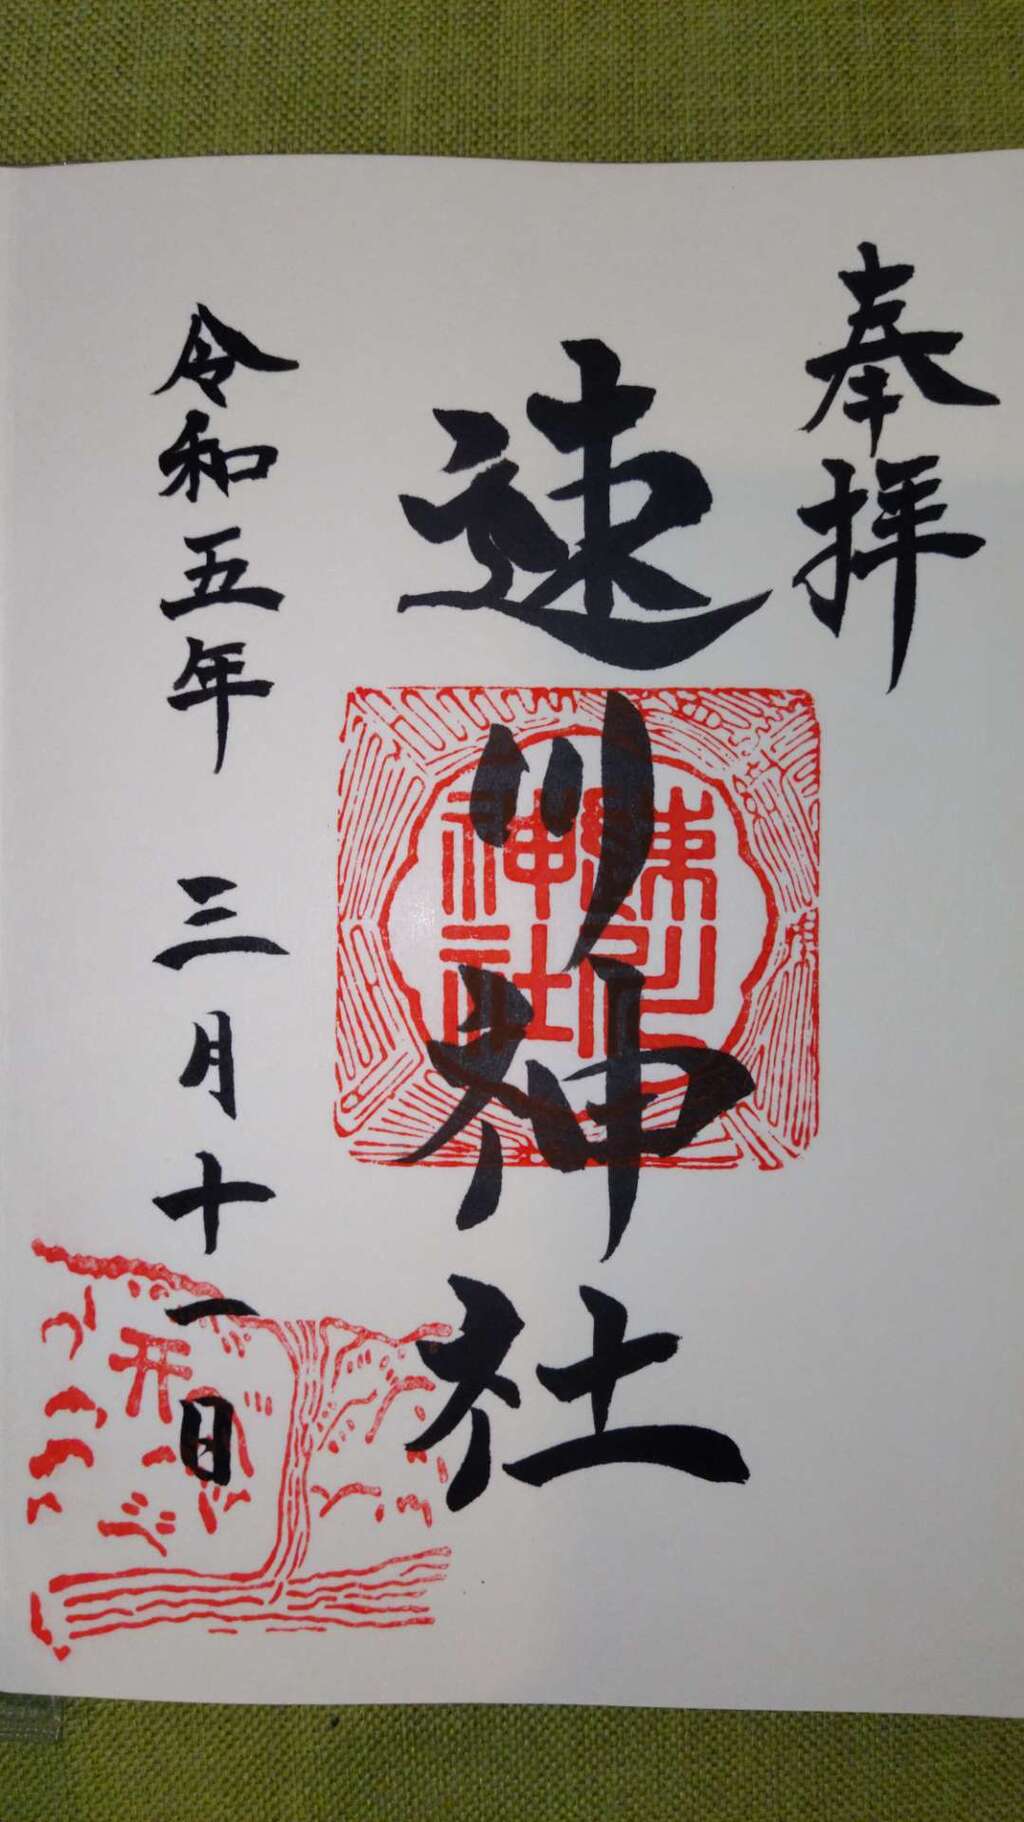 奉拝
速川神社
速川神社
令和五年 三月十一日